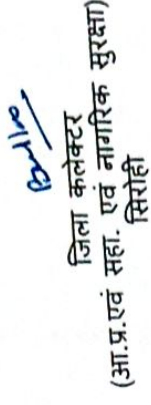 जिला कलेक्टर
(आ.प्र.एवं सहा. एवं नागरिक सुरक्षा)
सिरोही